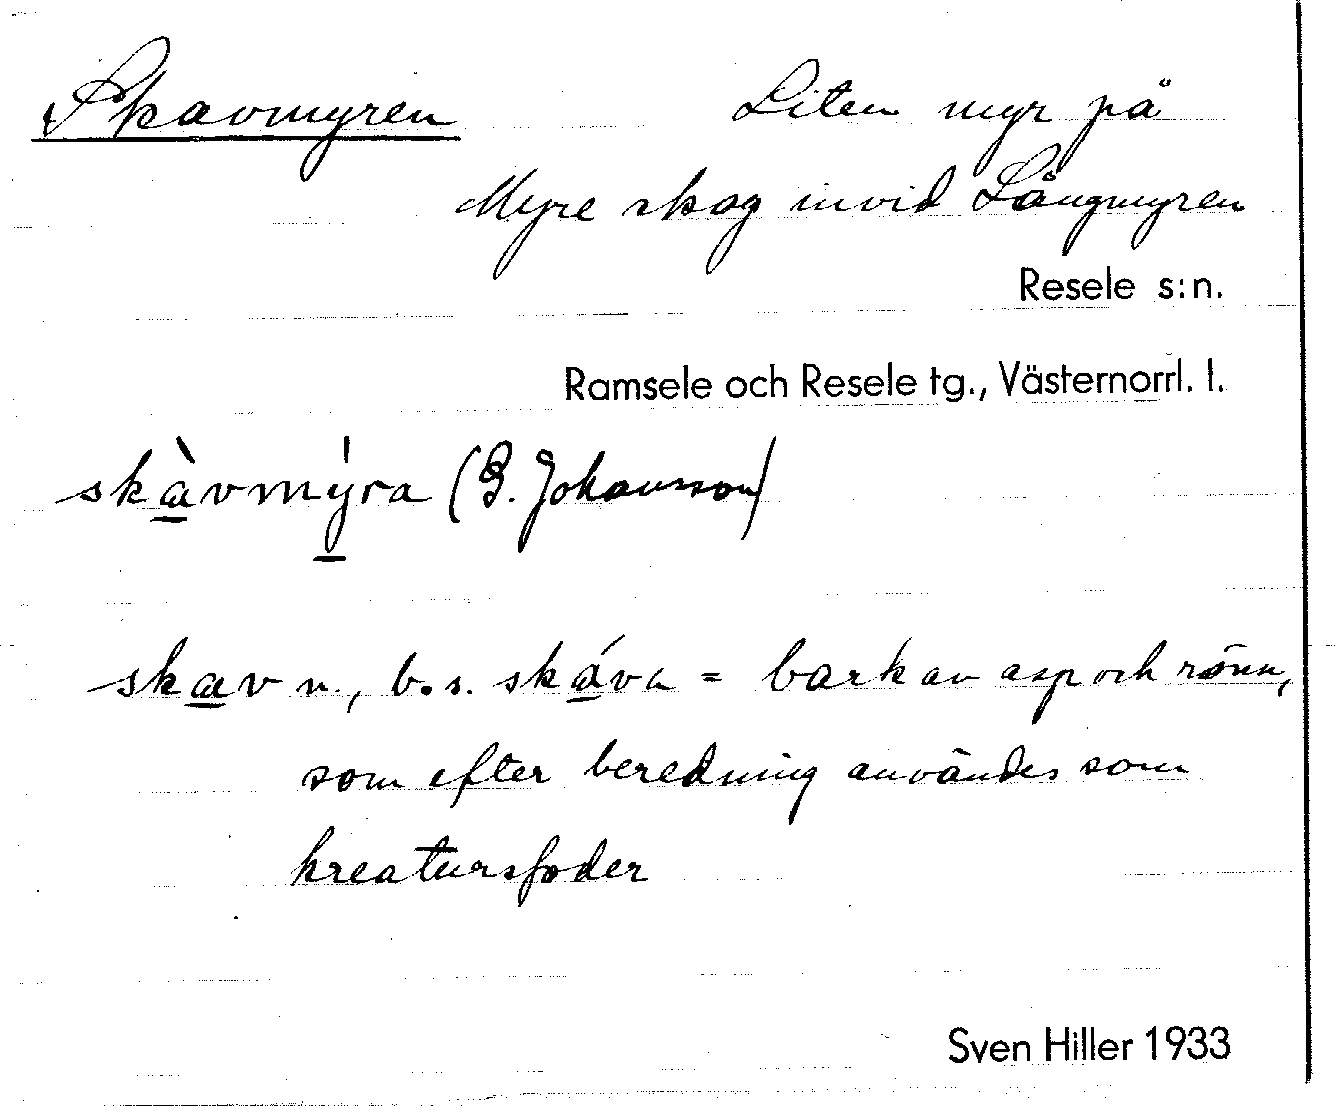 Skavmyren Liten myr på
Myre skog invid Långmyren
Resele s:n.
Ramsele och Resele tg., Västernorrl. l.
skàvmýra (G. Johansson)
skav n., b.s. skáva = bark av asp och rönn,
som efter beredning användes som
kreatursfoder
Sven Hiller 1933